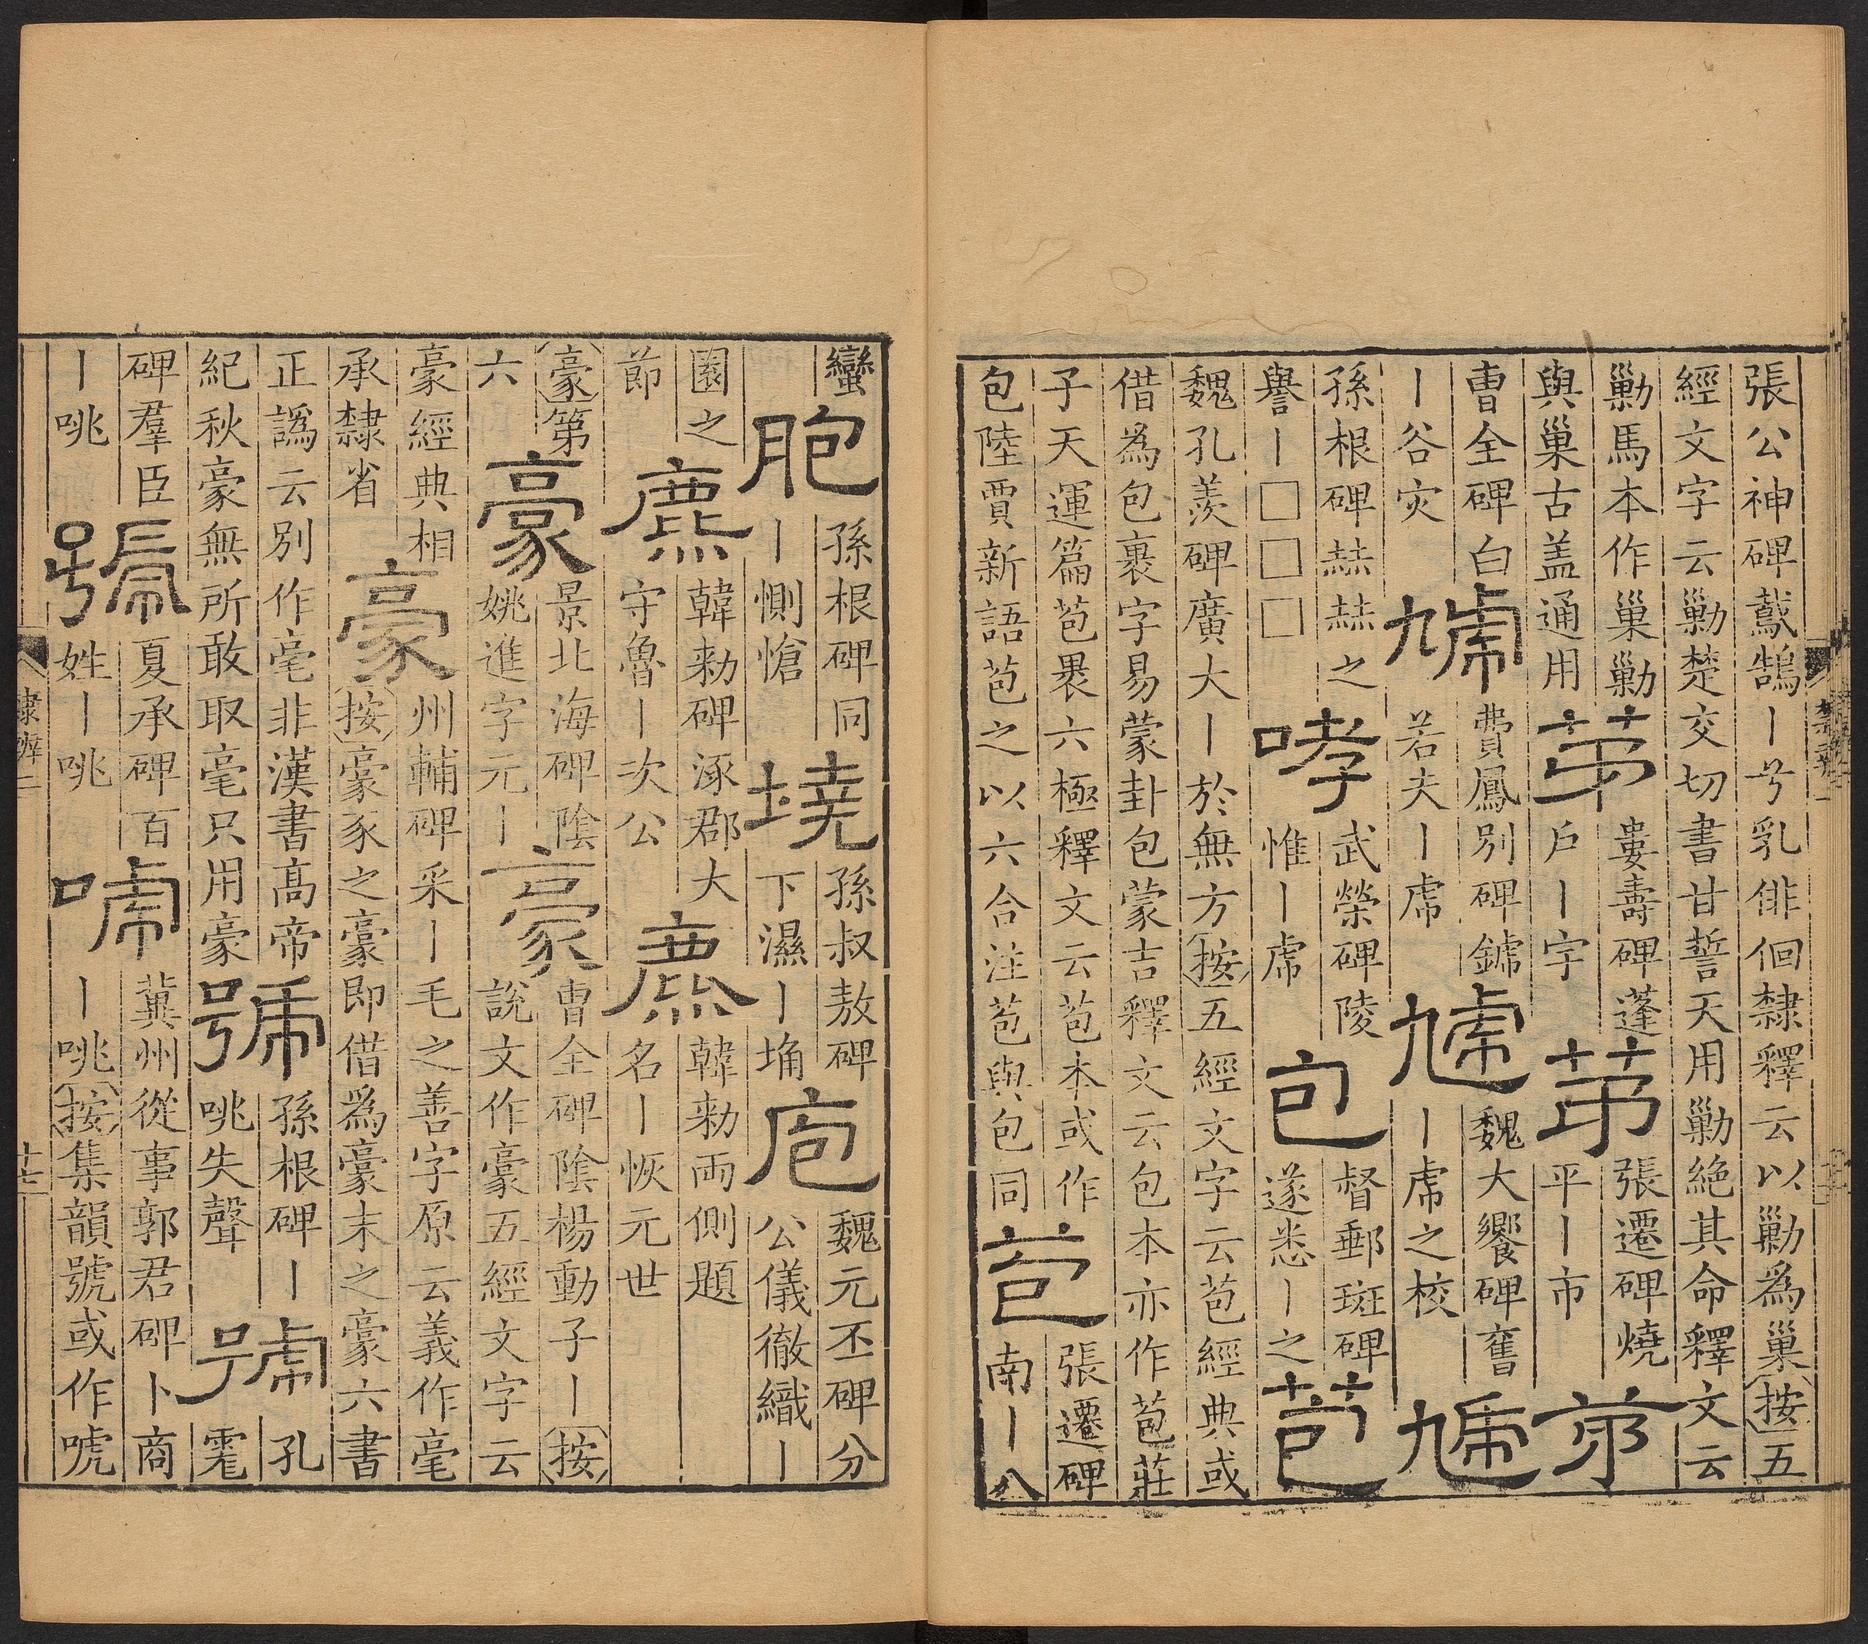 張公神碑鷰鵠丨兮乳俳佪隸釋云以勦為巢按五
經文字云勦楚交切書甘誓天用勦絶其命釋文云
勦馬本作巢勦
與巢古盖通用
茅
婁壽碑蓬
戶丨字
茅
張遷碑燒
平丨市
茅
曹全碑白
丨谷灾
虓
費鳳別碑鏬
若夫丨虎
虓
魏大饗碑奮
丨虎之校
虓
孫根碑赫赫之
譽丨□□□
哮
武榮碑陵
惟丨虎
包
督郵斑碑
遂悉丨之
苞
魏孔羨碑廣大丨於無方按五經文字云苞經典或
借為包裹字易蒙卦包蒙吉釋文云包本亦作苞莊
子天運篇苞褁六極釋文云苞本或作
包陸賈新語苞之以六合注苞與包同
苞
張遷碑
南丨八
蠻
胞
孫根碑同
丨惻愴
墝
孫叔敖碑
下濕丨埆
庖
魏元丕碑分
公儀徹織丨
園之
節
麃
韓勑碑涿郡大
守魯丨次公
麃
韓勑兩側題
名丨恢元世
豪第
六
豪
景北海碑陰
姚進字元丨
豪
曹全碑陰楊動子丨按
說文作豪五經文字云
豪經典相
承隸省
豪
州輔碑采丨毛之善字原云義作毫
按豪豕之豪即借為豪末之豪六書
正譌云別作毫非漢書髙帝
紀秋豪無所敢取毫只用豪
號
孫根碑丨
咷失聲
號
孔
雿
碑羣臣
丨咷
號
夏承碑百
姓丨咷
唬
冀州從事郭君碑卜商
丨咷按集韻號或作唬
隸辨二
十七